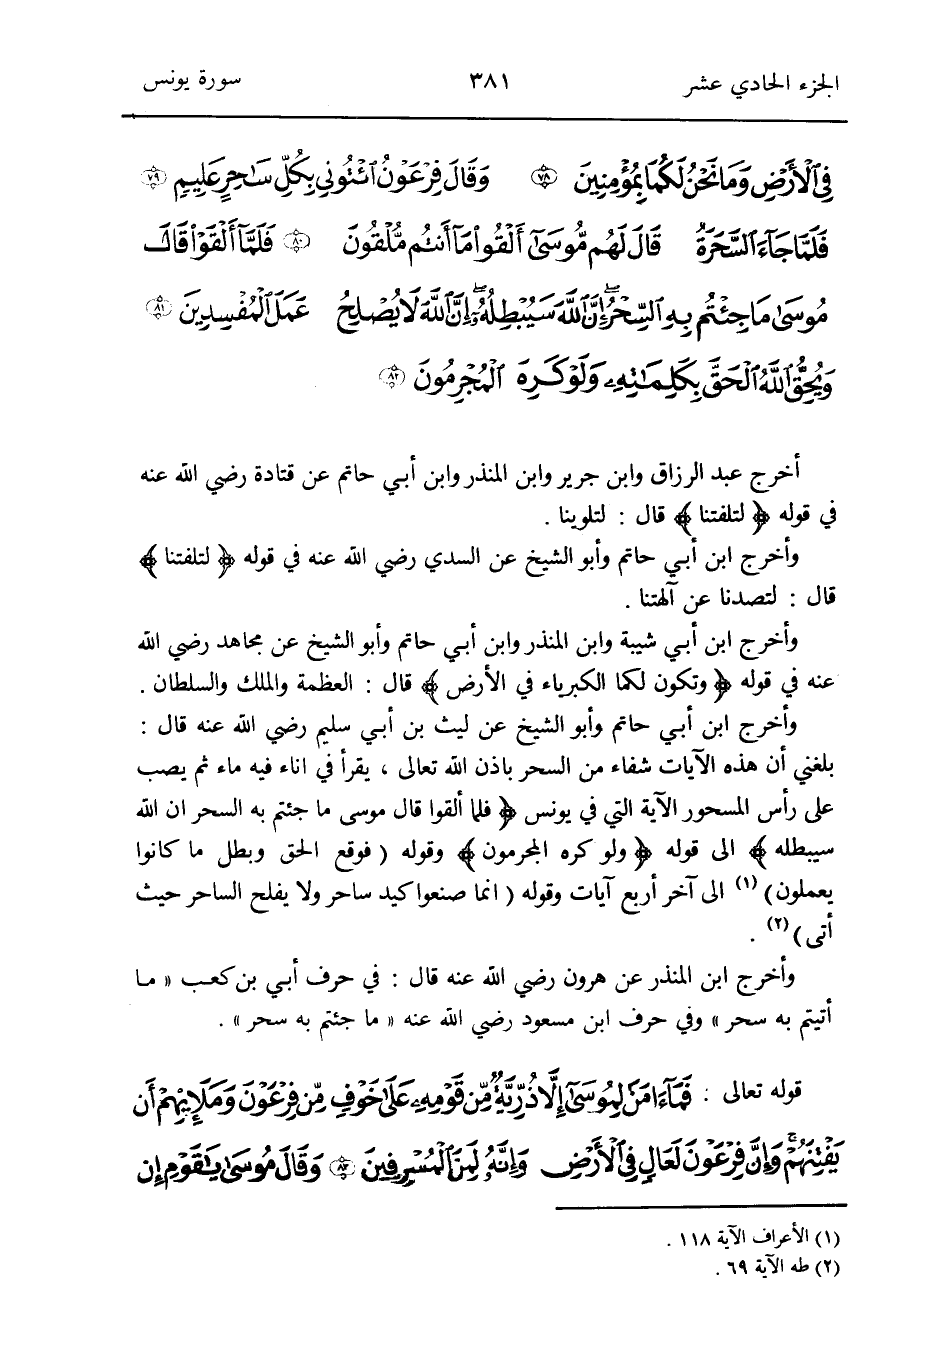 الجزء الحادي عشر ٣٨١ سورة يونس
فِي ٱلْأَرْضِ وَمَا نَحْنُ لَكُمَا بِمُؤْمِنِينَ ٧٨ وَقَالَ فِرْعَوْنُ ٱئْتُونِي بِكُلِّ سَٰحِرٍ عَلِيمٍ ٧٩
فَلَمَّا جَآءَ ٱلسَّحَرَةُ قَالَ لَهُم مُّوسَىٰٓ أَلْقُوا۟ مَآ أَنتُم مُّلْقُونَ ٨٠ فَلَمَّآ أَلْقَوْا۟ قَالَ
مُوسَىٰ مَا جِئْتُم بِهِ ٱلسِّحْرُ إِنَّ ٱللَّهَ سَيُبْطِلُهُۥٓ إِنَّ ٱللَّهَ لَا يُصْلِحُ عَمَلَ ٱلْمُفْسِدِينَ ٨١
وَيُحِقُّ ٱللَّهُ ٱلْحَقَّ بِكَلِمَٰتِهِۦ وَلَوْ كَرِهَ ٱلْمُجْرِمُونَ ٨٢
أخرج عبد الرزاق وابن جرير وابن المنذر وابن أبي حاتم عن قتادة رضي الله عنه
في قوله ﴿ لتلفتنا ﴾ قال : لتلوينا .
وأخرج ابن أبي حاتم وأبو الشيخ عن السدي رضي الله عنه في قوله ﴿ لتلفتنا ﴾
قال : لتصدنا عن آلهتنا .
وأخرج ابن أبي شيبة وابن المنذر وابن أبي حاتم وأبو الشيخ عن مجاهد رضي الله
عنه في قوله ﴿ وتكون لكما الكبرياء في الأرض ﴾ قال : العظمة والملك والسلطان .
وأخرج ابن أبي حاتم وأبو الشيخ عن ليث بن أبي سليم رضي الله عنه قال :
بلغني أن هذه الآيات شفاء من السحر باذن الله تعالى ، يقرأ في اناء فيه ماء ثم يصب
على رأس المسحور الآية التي في يونس ﴿ فلما ألقوا قال موسى ما جئتم به السحر ان الله
سيبطله ﴾ الى قوله ﴿ ولو كره المجرمون ﴾ وقوله ( فوقع الحق وبطل ما كانوا
يعملون ) (١) الى آخر أربع آيات وقوله ( انما صنعوا كيد ساحر ولا يفلح الساحر حيث
أتى ) (٢) .
وأخرج ابن المنذر عن هرون رضي الله عنه قال : في حرف أبي بن كعب « ما
أتيتم به سحر » وفي حرف ابن مسعود رضي الله عنه « ما جئتم به سحر » .
قوله تعالى : فَمَآ ءَامَنَ لِمُوسَىٰٓ إِلَّا ذُرِّيَّةٌ مِّن قَوْمِهِۦ عَلَىٰ خَوْفٍ مِّن فِرْعَوْنَ وَمَلَإِيْهِمْ أَن
يَفْتِنَهُمْ وَإِنَّ فِرْعَوْنَ لَعَالٍ فِي ٱلْأَرْضِ وَإِنَّهُۥ لَمِنَ ٱلْمُسْرِفِينَ ٨٣ وَقَالَ مُوسَىٰ يَٰقَوْمِ إِن
(١) الأعراف الآية ١١٨ .
(٢) طه الآية ٦٩ .